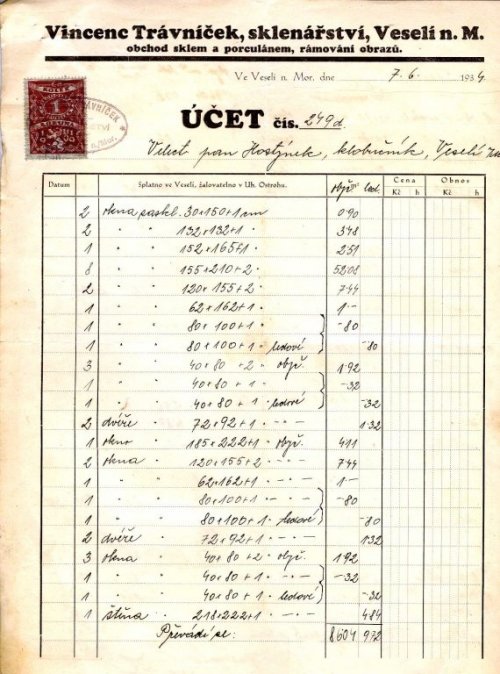 Vincenc Trávníček, sklenářství, Veselí n. M.
obchod sklem a porculánem, rámování obrazů.
Ve Veselí n. Mor. dne 7. 6. 1934
ÚČET čís. 249d.
Velect pan Hostýnek, klobučník, Veselí
Datum Splatno ve Veselí, žalovatelno v Uh. Ostrohu. obyč. led. Cena Obnos
Kč h Kč h
2 okna zaskl. 30x150+1 cm 0.90
2 " " 132x132+1 " 3.48
1 " " 152x165+1 " 2.51
8 " " 155x210+2 " 52.08
2 " " 120x155+2 " 7.44
1 " " 62x162+1 " 1.-
1 " " 80x100+1 " -.80
1 " " 80x100+1 " ledové -.80
3 " " 40x80 +2 " obyč. 1.92
1 " " 40x80 +1 " -.32
1 " " 40x80 +1 " ledové -.32
2 dvéře " 72x92+1 " - " - 1.32
1 okno " 185x222+1 " obyč. 4.11
2 okna " 120x155+2 " - " - 7.44
1 " " 62x162+1 " - " -
1 " " 80x100+1 " - " - -.80
1 " " 80x100+1 " ledové -.80
2 dvéře " 72x92+1 " - " - 1.32
3 okna " 40x80 +2 " obyč. 1.92
1 " " 40x80+1 " - " - -.32
1 " " 40x80+1 " ledové -.32
1 štína " 218x222+1 " - " - 4.84
Převádí se: 86.04 9.72